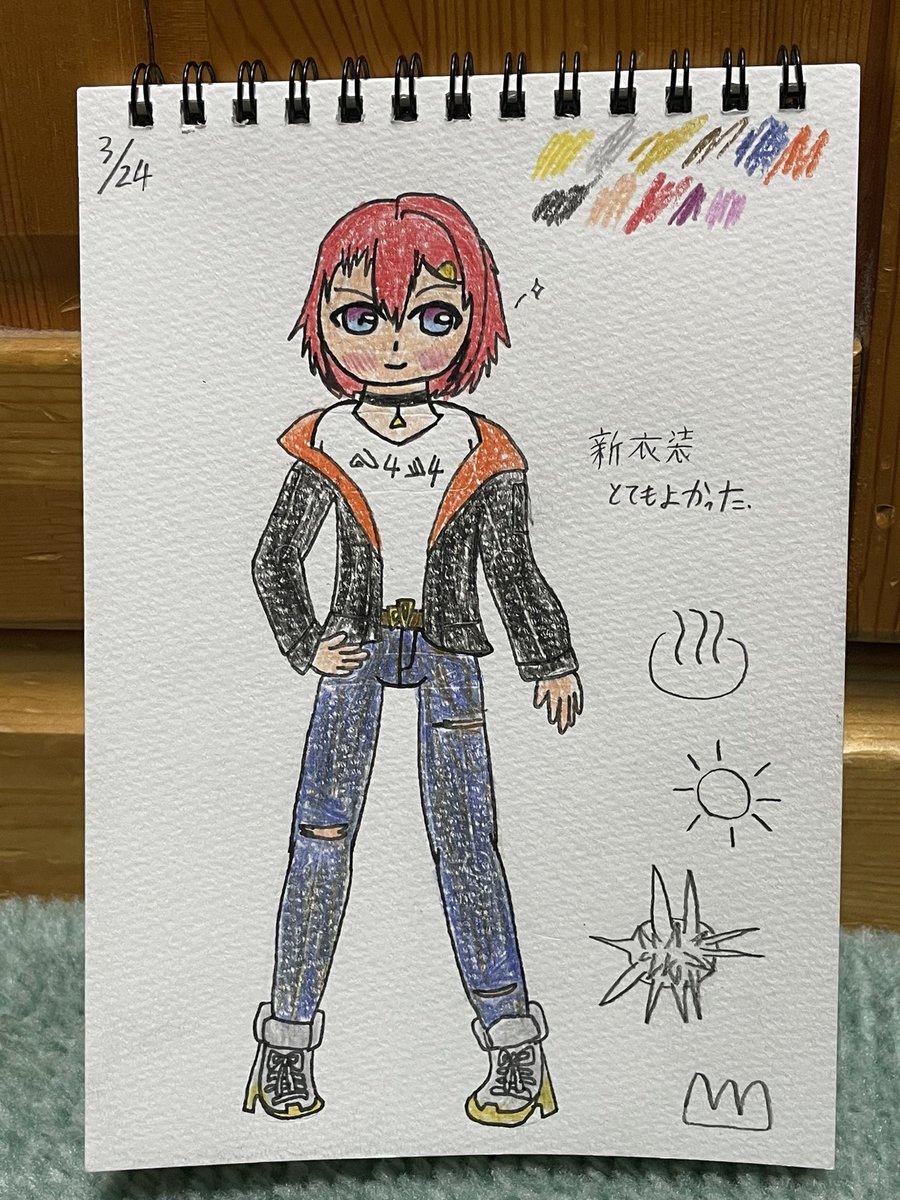 3/24
新衣装
とてもよかった.